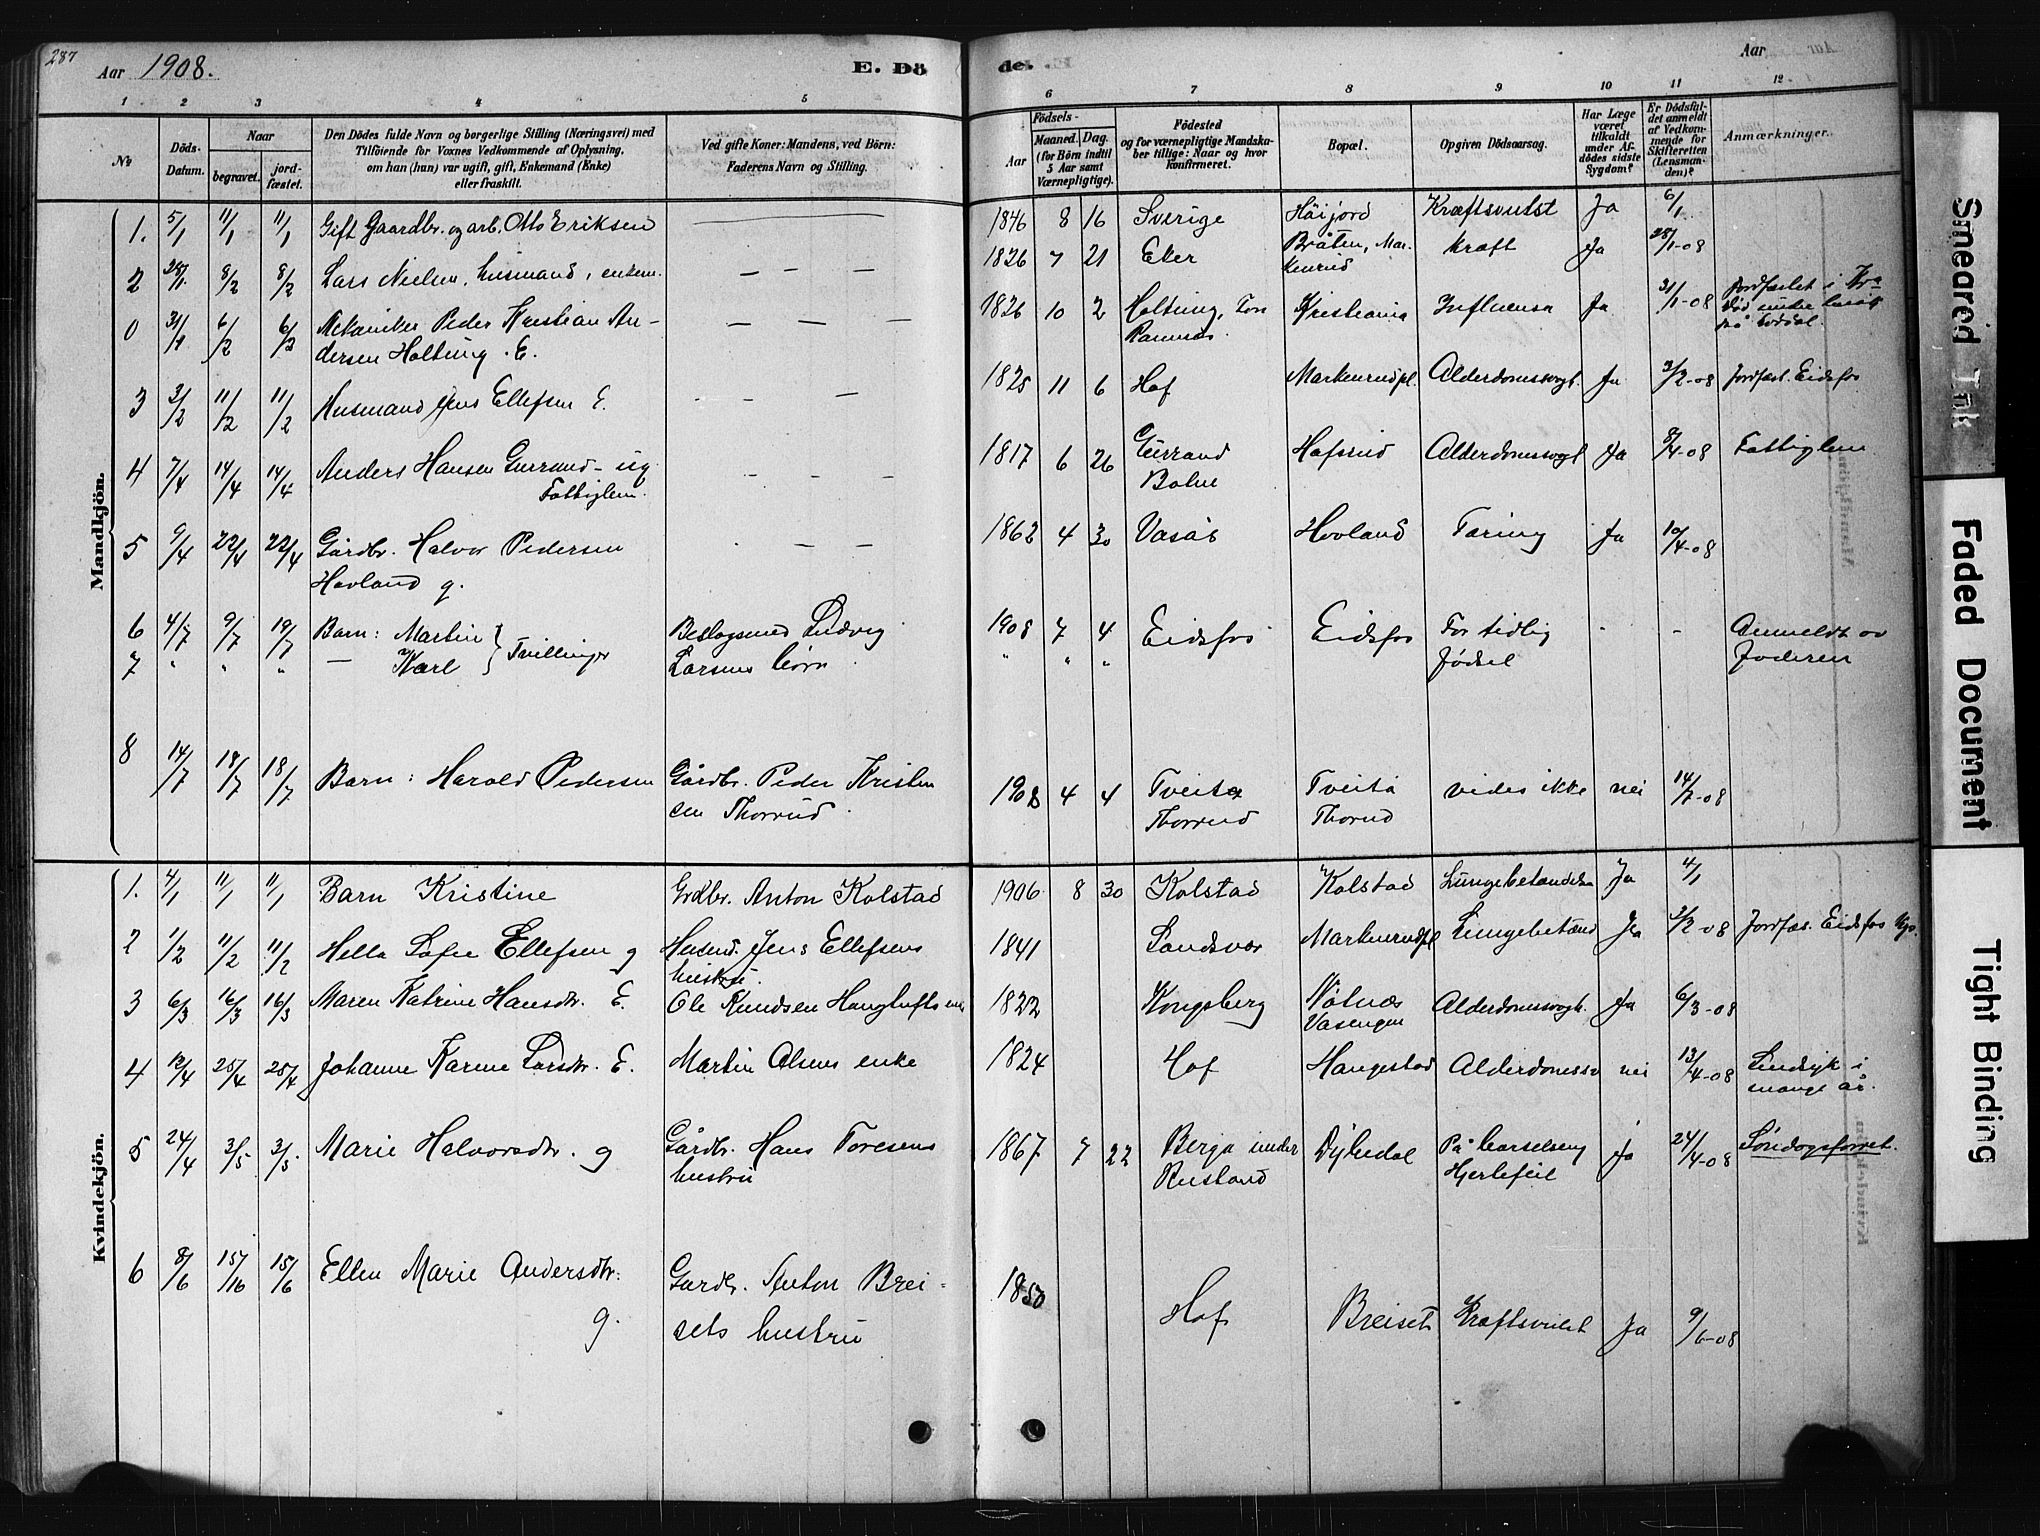 287
Aar 1908.
E. Dö
de.
Aar
1 2 3 4 5 6 7 8 9 10 11 12
No
Döds-
Datum.
Naar
begravet.
jord-
fæstet.
Den Dödes fulde Navn og borgerlige Stilling (Næringsvei) med
Tilföiende for Voxnes Vedkommende af Oplysning,
om han (hun) var ugift, gift, Enkemand (Enke)
eller fraskilt.
Ved gifte Koner: Mandens, ved Börn:
Faderens Navn og Stilling.
Födsels-
Aar
Maaned. Dag.
(for Börn indtil
5 Aar samt
Værnepligtige).
Födested
og for værnepligtige Mandska-
ber tillige: Naar og hvor
konfirmeret.
Bopæl.
Opgiven Dödsaarsag.
Har Læge
været
tilkaldt
under Af-
dödes sidste
Sygdom?
Er Dödsfal-
det anmeldt
af Vedkom-
mende for
Skifteretten
(Lensman-
den)?
Anmærkninger.
Mandkjön.
1. 5/1 11/1 11/1 Gift Gaardbr. og arb. Otto Eriksen 1846 8 16 Sverige Höijord Kræftsvulst Ja 6/1
2 28/1 8/2 8/2 Lars Nielsen, husmand, enkem. — — — 1826 7 21 Eker Bråten, Mar-
kenrud kræft Ja 28/1-08
0 31/1 6/2 6/2 Mekaniker Peder Kristian An-
dersen Holtung. E. — — — 1826 10 2 Holtung, Kristiania Influensa Ja 31/1-08 Jordfæstet i
3 3/2 11/2 11/2 Husmand Jens Ellefsen E. - - — 1825 11 6 Hof Markenrudpl. Alderdomssvagh. Ja 3/2-08 Jordfæst. Eidsfos
4 7/4 14/4 14/4 Anders Hansen Gurrand - ug
Fattiglem. - - - 1817 6 26 Gurrand Hofsrud Alderdomssvagh Ja 8/4-08 Fattiglem
5 9/4 22/4 22/4 Gårdbr. Halvor Pedersen
Hovland g. - — — 1862 4 30 Vasås Hovland Tæring Ja 10/4-08
6 4/7 9/7 19/7 Barn: Martin } Tvillinger Beslagsmed Ludvig 1908 7 4 Eidsfos Eidsfos For tidlig - - Anmeldt av
7 " " " — Karl Larsens börn " " " födsel Faderen
8 14/7 18/7 18/7 Barn: Harald Pedersen Gårdbr. Peder Kristen
sen Thorrud 1908 4 4 Tveita
Thorrud Tveita
Thorud vides ikke nei 14/7-08
Kvindekjön.
1. 4/1 11/1 11/1 Barn Kristine Grdbr. Anton Kolstad 1906 8 30 Kolstad Kolstad Lungebetændelse Ja 4/1
2 1/2 11/2 11/2 Hella Sofie Ellefsen g Husmd. Jens Ellefsens
hustru. 1841 Sandsvær Markenrudpl Lungebetænd Ja 3/2-08 Jordfæs. Eidsfos
3 6/3 16/3 16/3 Maren Katrine Hansdtr. E. Ole Knudsen 1822 Kongsberg Nötnæs
Vasengen Alderdomssvagh. Ja 6/3-08
4 12/4 25/4 25/4 Johanne Karine Larsdtr. E. Martin Olsens enke 1824 Hof Haugestad Alderdomssv nei 13/4-08 Sindsyk i
mange år.
5 24/4 3/5 3/5 Marie Halvorsdtr. g Gårdbr. Hans Toresens
hustru 1867 7 22 Berga under
Rustand Dybedal På barselseng
Hjertefeil Ja 24/4-08
6 8/6 15/16 15/6 Ellen Marie Andersdtr.
g. Gardbr. Anton Brei-
sets hustru 1850 Hof Breiset Kræftsvulst Ja 9/6-08
Smeared Ink
Faded Document
Tight Binding